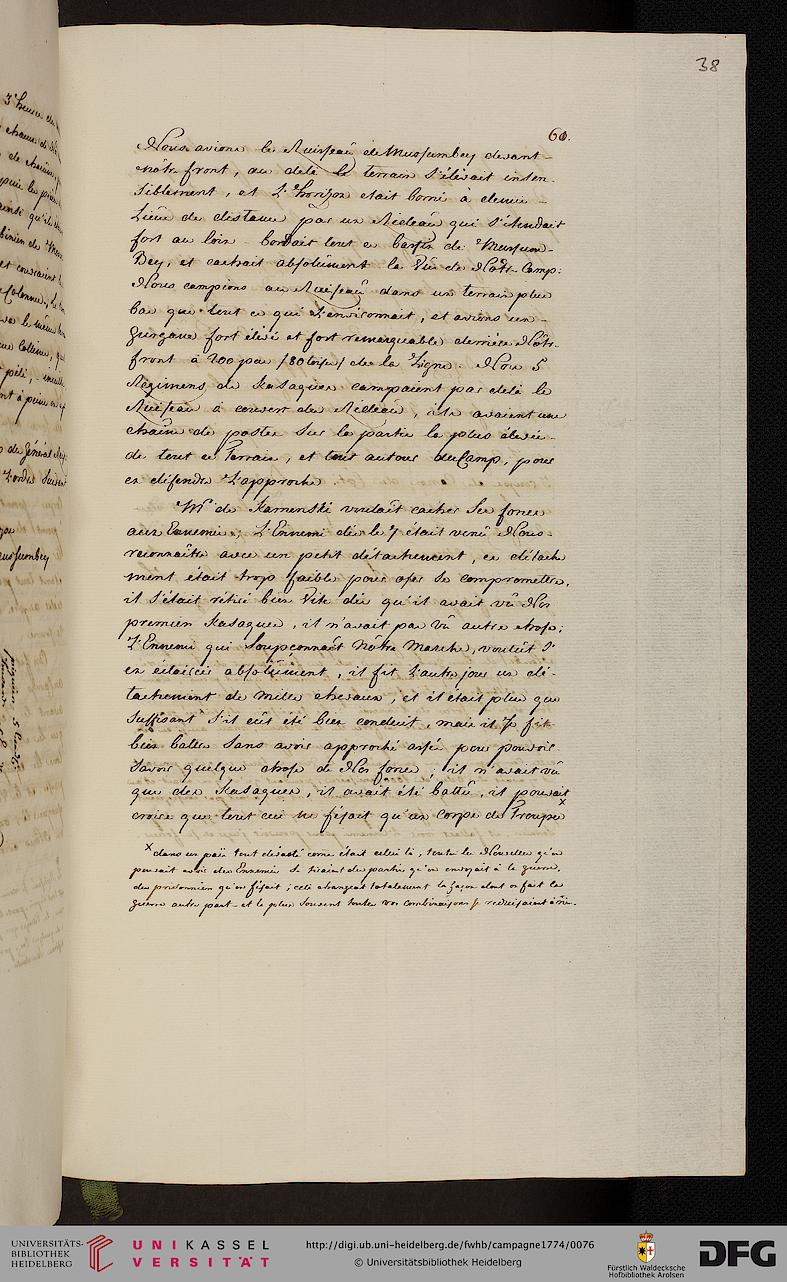 38
60.
Nous avions le Ruisseau de Mussumbey devant
nôtre front, au delà le terrain s'élevait insen-
siblement, et l'horizon etait borné à demie-
Lieue de distance par un Rideau qui s'étendait
fort au loin bordait tout ce bassin de Mussum-
Bey, et cachait absolument la Vüe de Nôtre Camp:
Nous campions au Ruisseau dans un terrain plus
bas que tout ce qui l'environnait, et avions un
gurgane fort élévé et fort remarquable derrière Nôtre
front à 200 pas /80 toises/ de la Ligne. Nos 5
Régimens de Kasaques campaient par delà le
Ruisseau à couvert du Rideau, ils avaient une
chaine de postes sur la partie la plus élevée
de tout ce Terrain, et tout autour du Camp, pour
en défendre l'approche.
Mr de Kamenski voulait cacher ses forces
aux Ennemis; L'Ennemi dès le 7 était venû Nous
reconnaître avec un petit détachement, ce détache
ment était trop faible pour oser se compromettre,
il s'était rétiré bien vite dès qu'il avait vû Nos
premiers Kasaques, il n'avait pas vû autre chose;
L'Ennemi qui soupçonnait Nôtre Marche, voulût s'
en éclaircir absolument, il fit l'autre jour un dé-
tachement de mille chevaux, et il était plus que
suffisant s'il eût été bien conduit, mais il se fit
bien battre sans avoir approché assés pour pouvoir
savoir quelque chose de Nos forces, il n'avait vû
que des Kasaques, il avait été battû, il pouvait
croire que tout cui ne fesait qu'un corps de Troupes x
x dans un païs tout dévasté come était celui là, toutes les Nouvelles qu'on
pouvait avoir des Ennemis se tiraient des partis qu'on envoyait à la guerre,
des prisonniers qu'on fesait; celà changeat totalement la façon dont on fait la
guerre autre part et le plus souvent toutes vos combinaisons se reduisaient à rien.
3 heures
Mussumbey
du Général
UNIVERSITÄTS-
BIBLIOTHEK
HEIDELBERG
UNIKASSEL
VERSITÄT
http://digi.ub.uni-heidelberg.de/fwhb/campagne1774/0076
© Universitätsbibliothek Heidelberg
Fürstlich Waldecksche
Hofbibliothek Arolsen
DFG